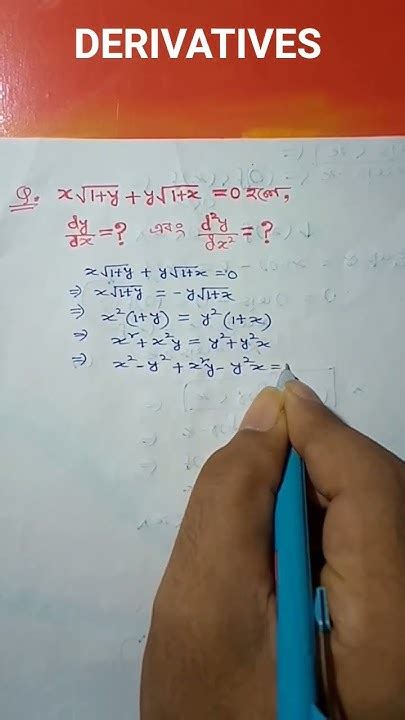 DERIVATIVES
Q. x√1+y + y√1+x = 0 হলে,
dy/dx = ? এবং d²y/dx² = ?
x√1+y + y√1+x = 0
⇒ x√1+y = -y√1+x
⇒ x²(1+y) = y²(1+x)
⇒ x²+x²y = y²+y²x
⇒ x²-y²+x²y-y²x =